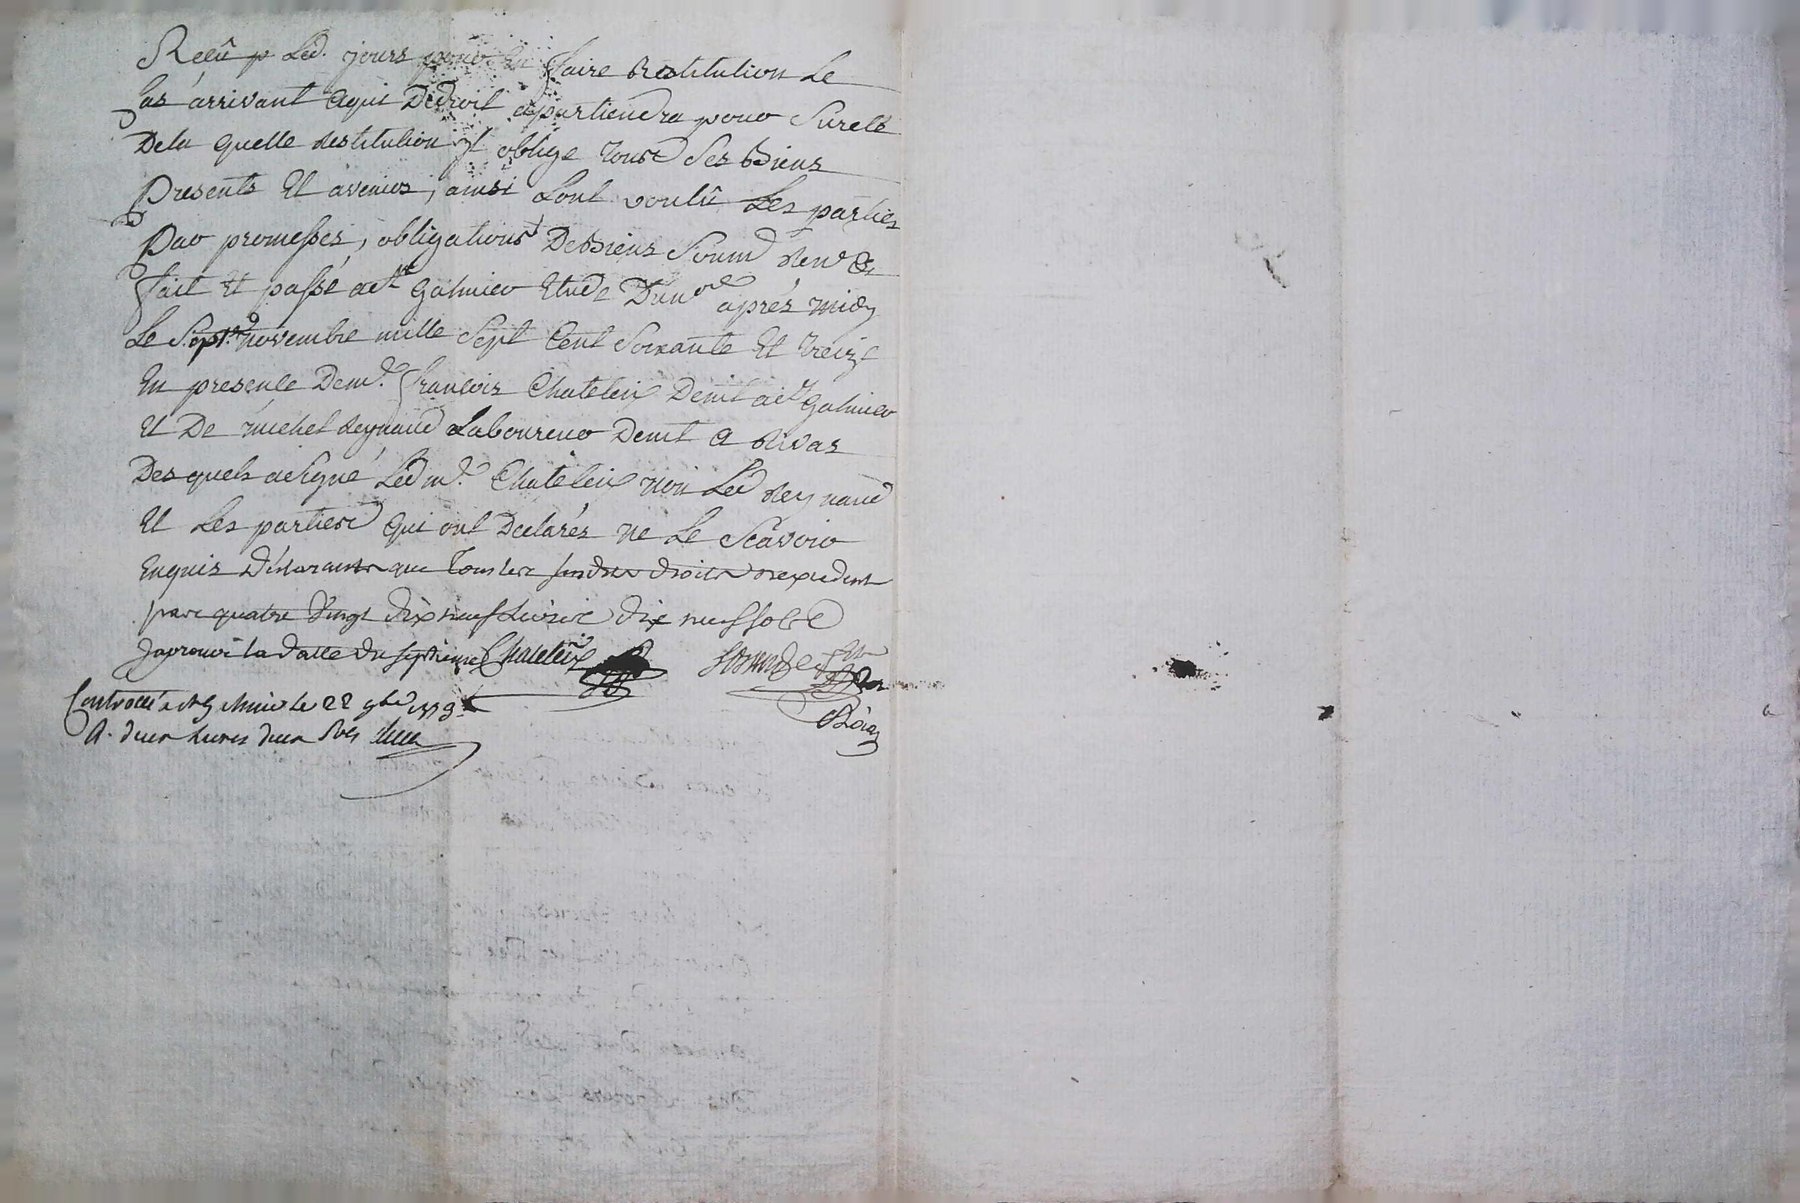 Recû p Led. jours pour en faire Restitution Le
Cas arrivant a qui De droit apartiendra pour Sureté
De la quelle Restitution Jl oblige tous Ses Biens
Presents Et avenirs, ainsi Lont voulû Les parties
Par promesses, obligations De Biens Soum Ren &
fait Et passé a St Galmier Etude Du nore après midy
Le Sept novembre mille Sept Cent Soixante Et treize
En presence De mr. francois Chatelin Demt a St Galmier
Et De michel Reynaud Laboureur Demt a Rivas
Des quels a signé Led mr. Chatelin non Led Reynaud
Et Les parties Qui ont Declarés ne Le Scavoir
Enquis Déclarants que Tous les droits n'excedent
pas quatre Vingt dix neuf Livres dix neuf sols
Japrouve la datte du septieme Chatelin
Controllé a St Galmier le 22 9bre 1773
A. deux Livres deux sols